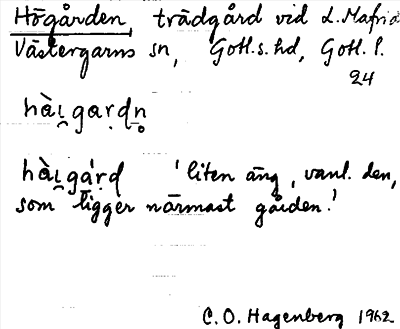 Högården, trädgård vid L. Mafrids
Västergarns sn, Gotl. s. hd, Gotl. l.
24
hàı̯gaṛdn̥
hàı̯gá̱ṛd 'liten äng, vanl. den,
som ligger närmast gården.'
C. O. Hagenberg 1962